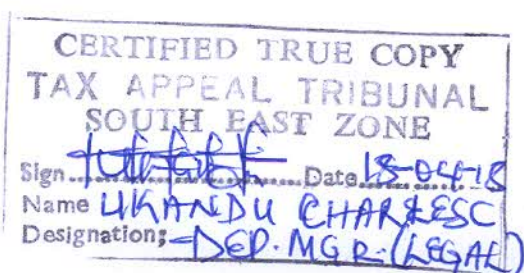 CERTIFIED TRUE COPY
TAX APPEAL TRIBUNAL
SOUTH EAST ZONE
Sign.................Date 18-04-18
Name UKANDU CHARLES C
Designation; DEP. MGR. (LEGAL)